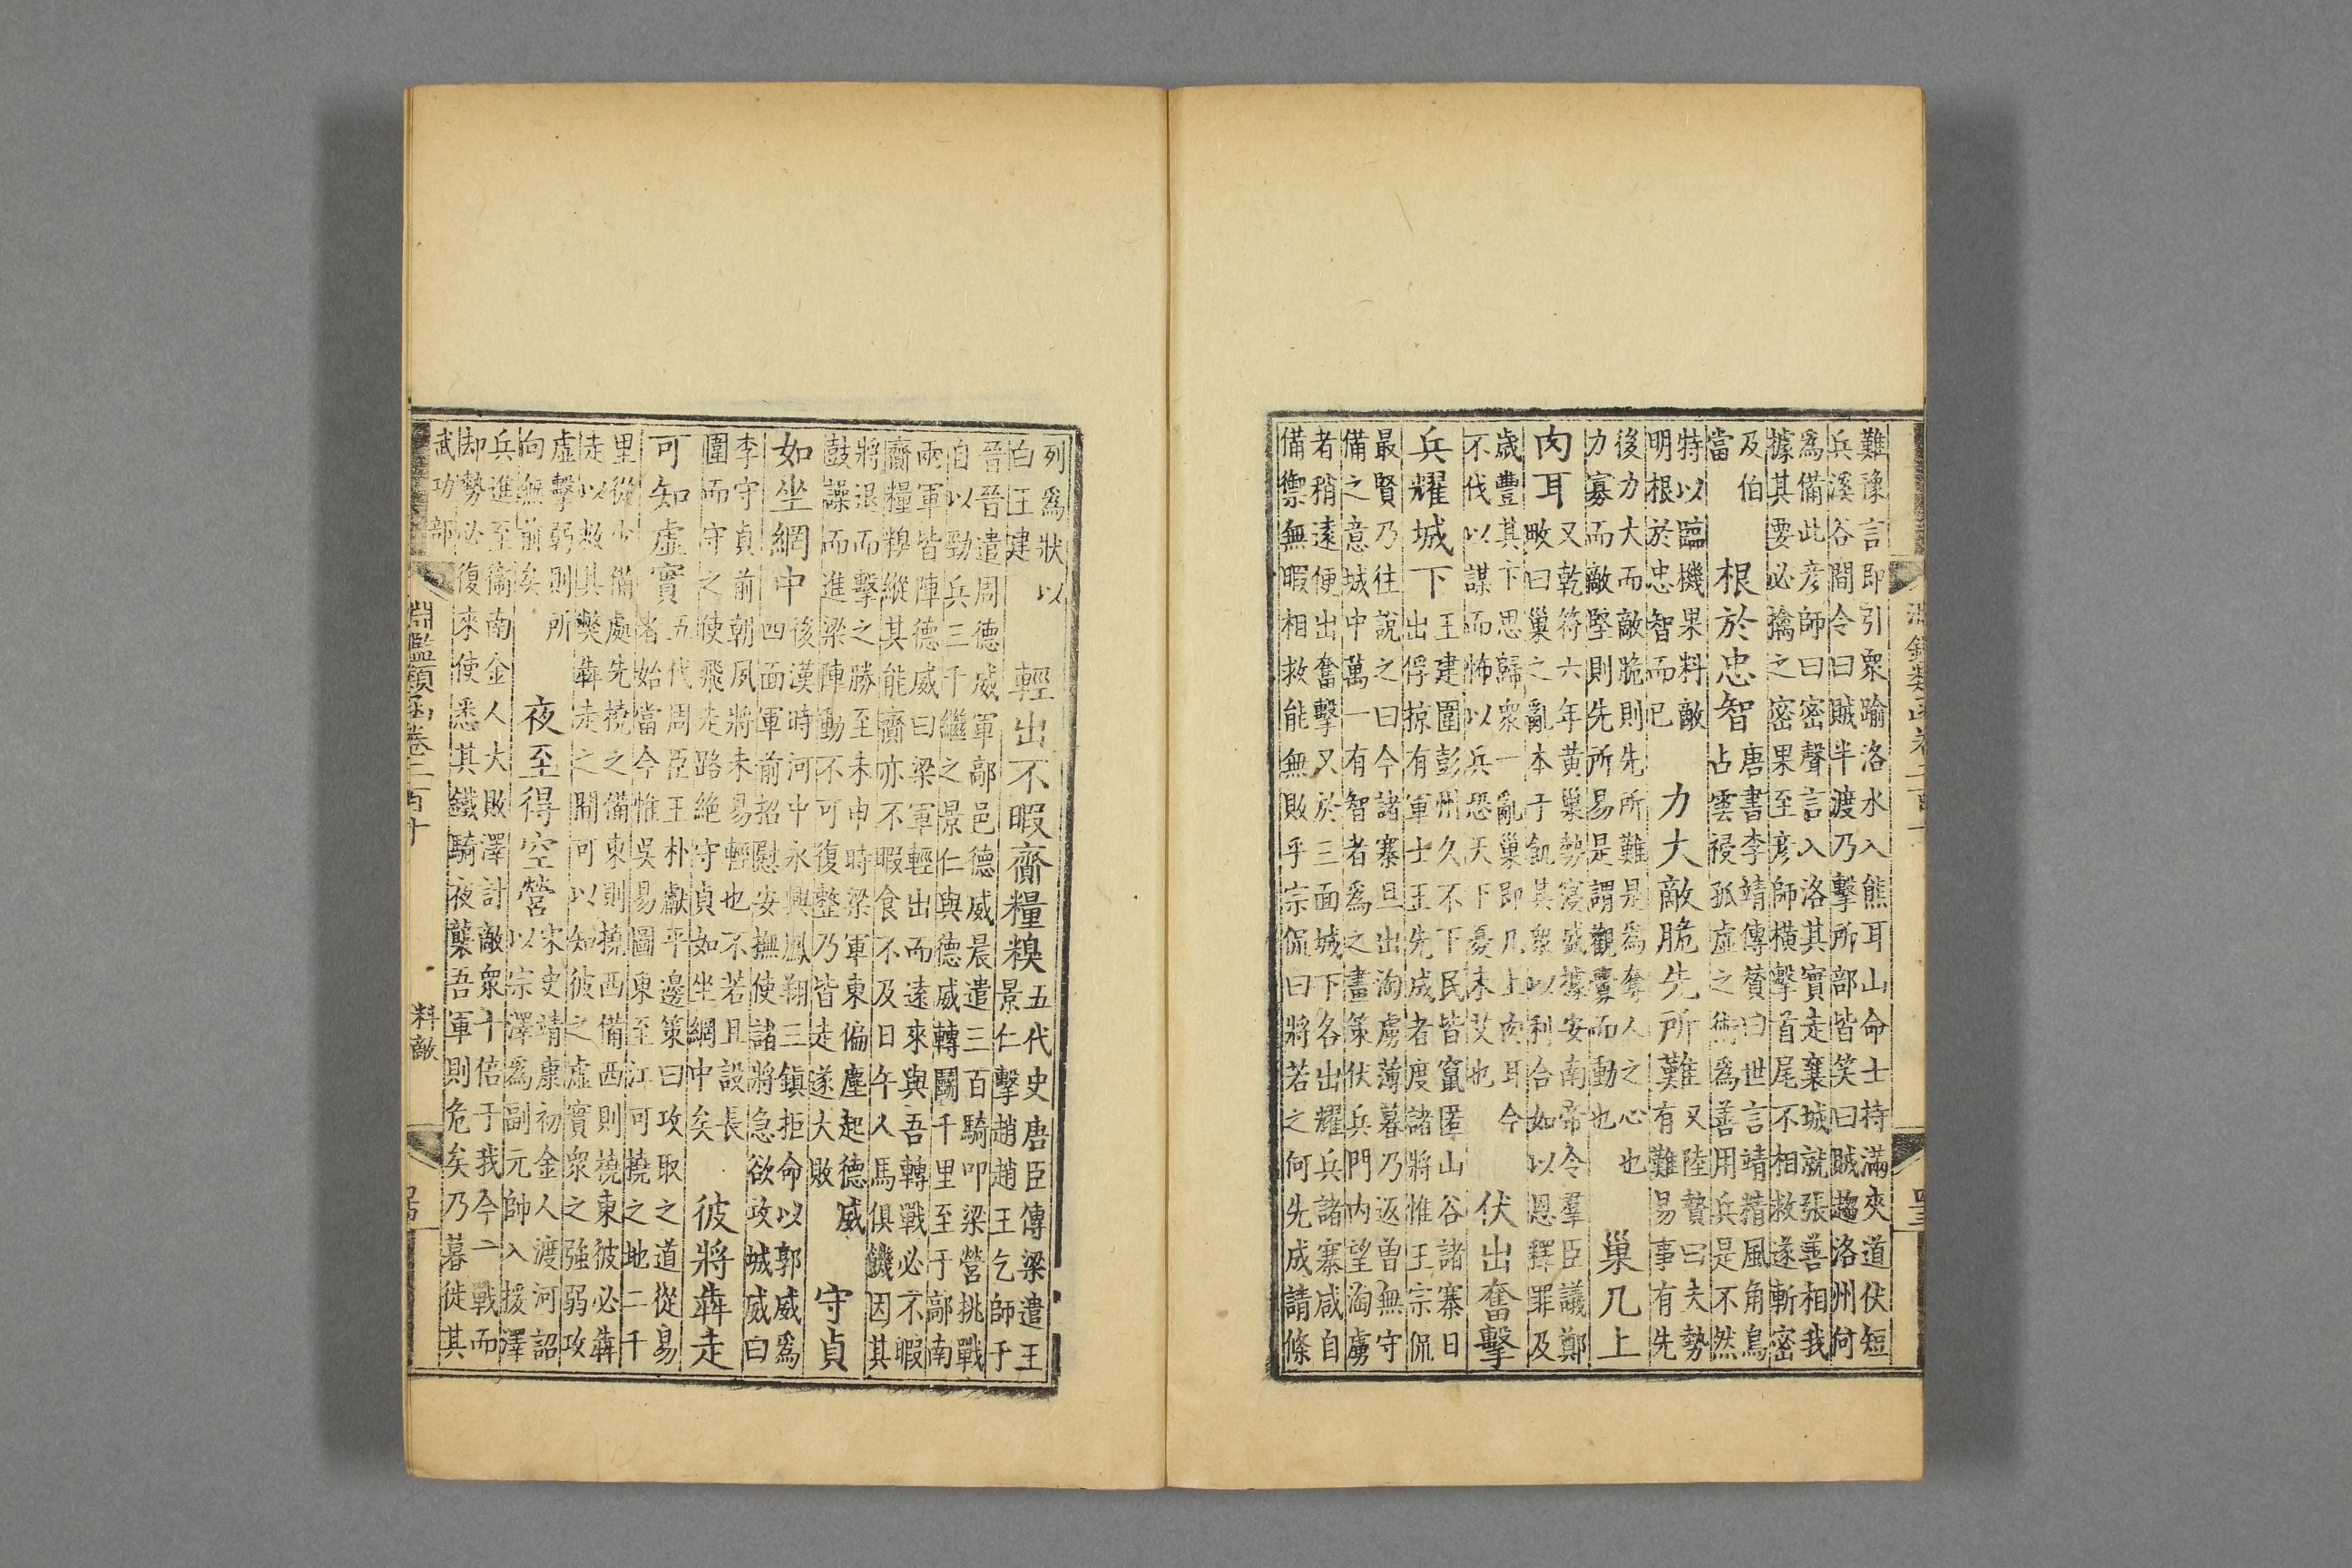 難豫言即引衆踰洛水入熊耳山命士持滿夾道伏短
兵溪谷間令曰賊半渡乃擊所部皆笑曰賊趨洛州何
爲備此彦師曰密聲言入洛其實走襄城就張善相我
據其要必擒之密果至彦師橫擊首尾不相救遂斬密
及伯
當
根於忠智
唐書李靖傳贊曰世言靖精風角鳥
占雲祲孤虛之術爲善用兵是不然
特以臨機果料敵
明根於忠智而已
力大敵脆先所難
又陸贄曰夫勢
有難易事有先
後力大而敵脆則先所難是爲奪人之心也
力寡而敵堅則先所易是謂觀釁而動也
巢几上
肉耳
又乾符六年黄巢勢寖盛據安南帝令羣臣議鄭
畋曰巢之亂本于飢其衆以利合如以恩釋罪及
歲豐其下思歸衆一亂巢即几上肉耳今
不伐以謀而怖以兵恐天下憂未艾也
伏出奮擊
兵耀城下
王建圍彭州久不下民皆竄匿山谷諸寨日
出俘掠有軍士王先成者度諸將惟王宗侃
最賢乃往說之曰今諸寨旦出淘虜薄暮乃返曾無守
備之意城中萬一有智者爲之畫策伏兵門内望淘虜
者稍遠便出奮擊又於三面城下各出耀兵諸寨咸自
備禦無暇相救能無敗乎宗侃曰將若之何先成請條
列爲狀以
白王建
輕出不暇齎糧糗
五代史唐臣傳梁遣王
景仁擊趙趙王乞師于
晉晉遣周德威軍鄗邑德威晨遣三百騎叩梁營挑戰
自以勁兵三千繼之景仁與德威轉鬬千里至于鄗南
兩軍皆陣德威曰梁軍輕出而遠來與吾轉戰必不暇
齎糧糗縱其能齎亦不暇食不及日午人馬俱饑因其
將退而擊之勝至未申時梁軍東偏塵起德威
鼓譟而進梁陣動不可復整乃皆走遂大敗
守貞
如坐網中
後漢時河中永興鳳翔三鎭拒命以郭威爲
四面軍前招慰安撫使諸將急欲攻城威曰
李守貞前朝夙將未易輕也不若且設長
圍而守之使飛走路絶守貞如坐網中矣
彼將犇走
可知虛實
五代周臣王朴獻平邊策曰攻取之道從易
者始當今惟吳易圖東至江可撓之地二千
里從少備處先撓之備東則撓西備西則撓東彼必犇
走以救其獘犇走之間可以知彼之虛實衆之强弱攻
虛擊弱則所
向無前矣
夜至得空營
宋史靖康初金人渡河詔
以宗澤爲副元帥入援澤
兵進至衞南金人大敗澤計敵衆十倍于我今一戰而
却勢必復來使悉其鐵騎夜襲吾軍則危矣乃暮徙其
武功部
淵鑑類函卷二百十
料敵